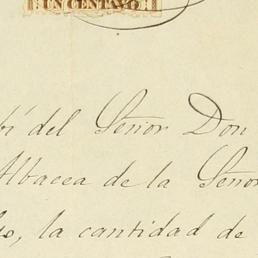 UN CENTAVO
bí del Señor Don
Albacea de la Señor
la cantidad de